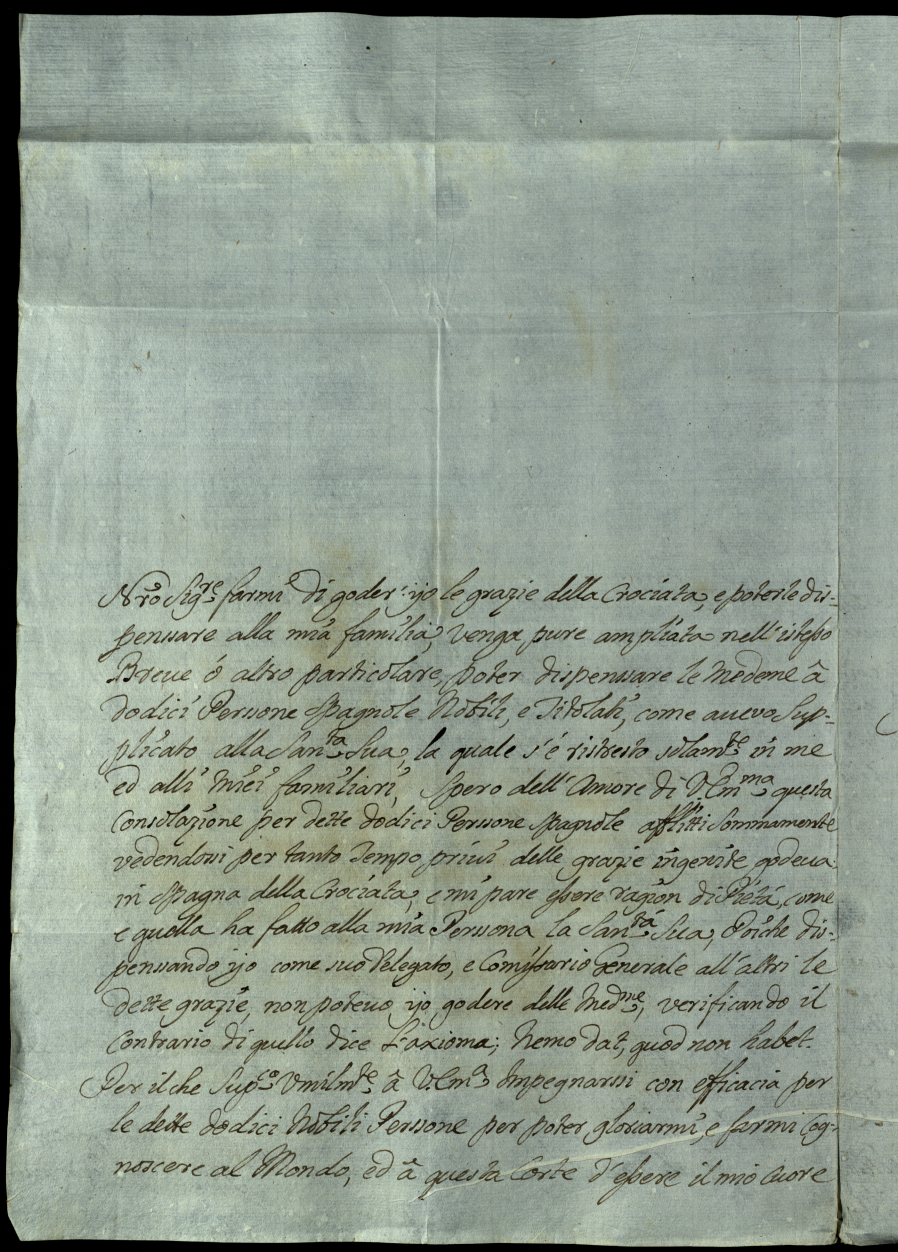 Nrõ Sigre farmi di goder ijo le grazie della Crociata, e poterle dis-
penssare alla mia familia, venga pure ampliata nell'istesso
Breve ó altro particolare, poter dispenssare le medeme â
dodici Perssone Spagnole Nobili, e Titolati, come avevo Sup-
plicato alla Santa Sua, la quale s'é ristretto solamte in me
ed alli miei familiari, Spero dell'Amore di V.Emma questa
Consolazione per dette dodici Perssone Spagnole afflitti Sommamente
vedendossi per tanto Tempo privi delle grazie ingenite godeva
in Spagna della Crociata, e mi pare essere ragion di Pietá, come
e quella ha fatto alla mia Perssona la Santá Sua, Poiche dis-
penssando ijo come suo Delegato, e Comissario Generale all'altri le
dette grazie, non potevo ijo godere delle Medme, verificando il
Contrario di quello dice L'axioma; Nemo dat, quod non habet.
Per il che Supco Vmilmte â V.Ema Impegnarssi con efficacia per
le dette dodici Nobili Perssone per poter gloriarmi, e farmi Cog-
noscere al Mondo, ed â questa Corte d'essere il mio Cuore